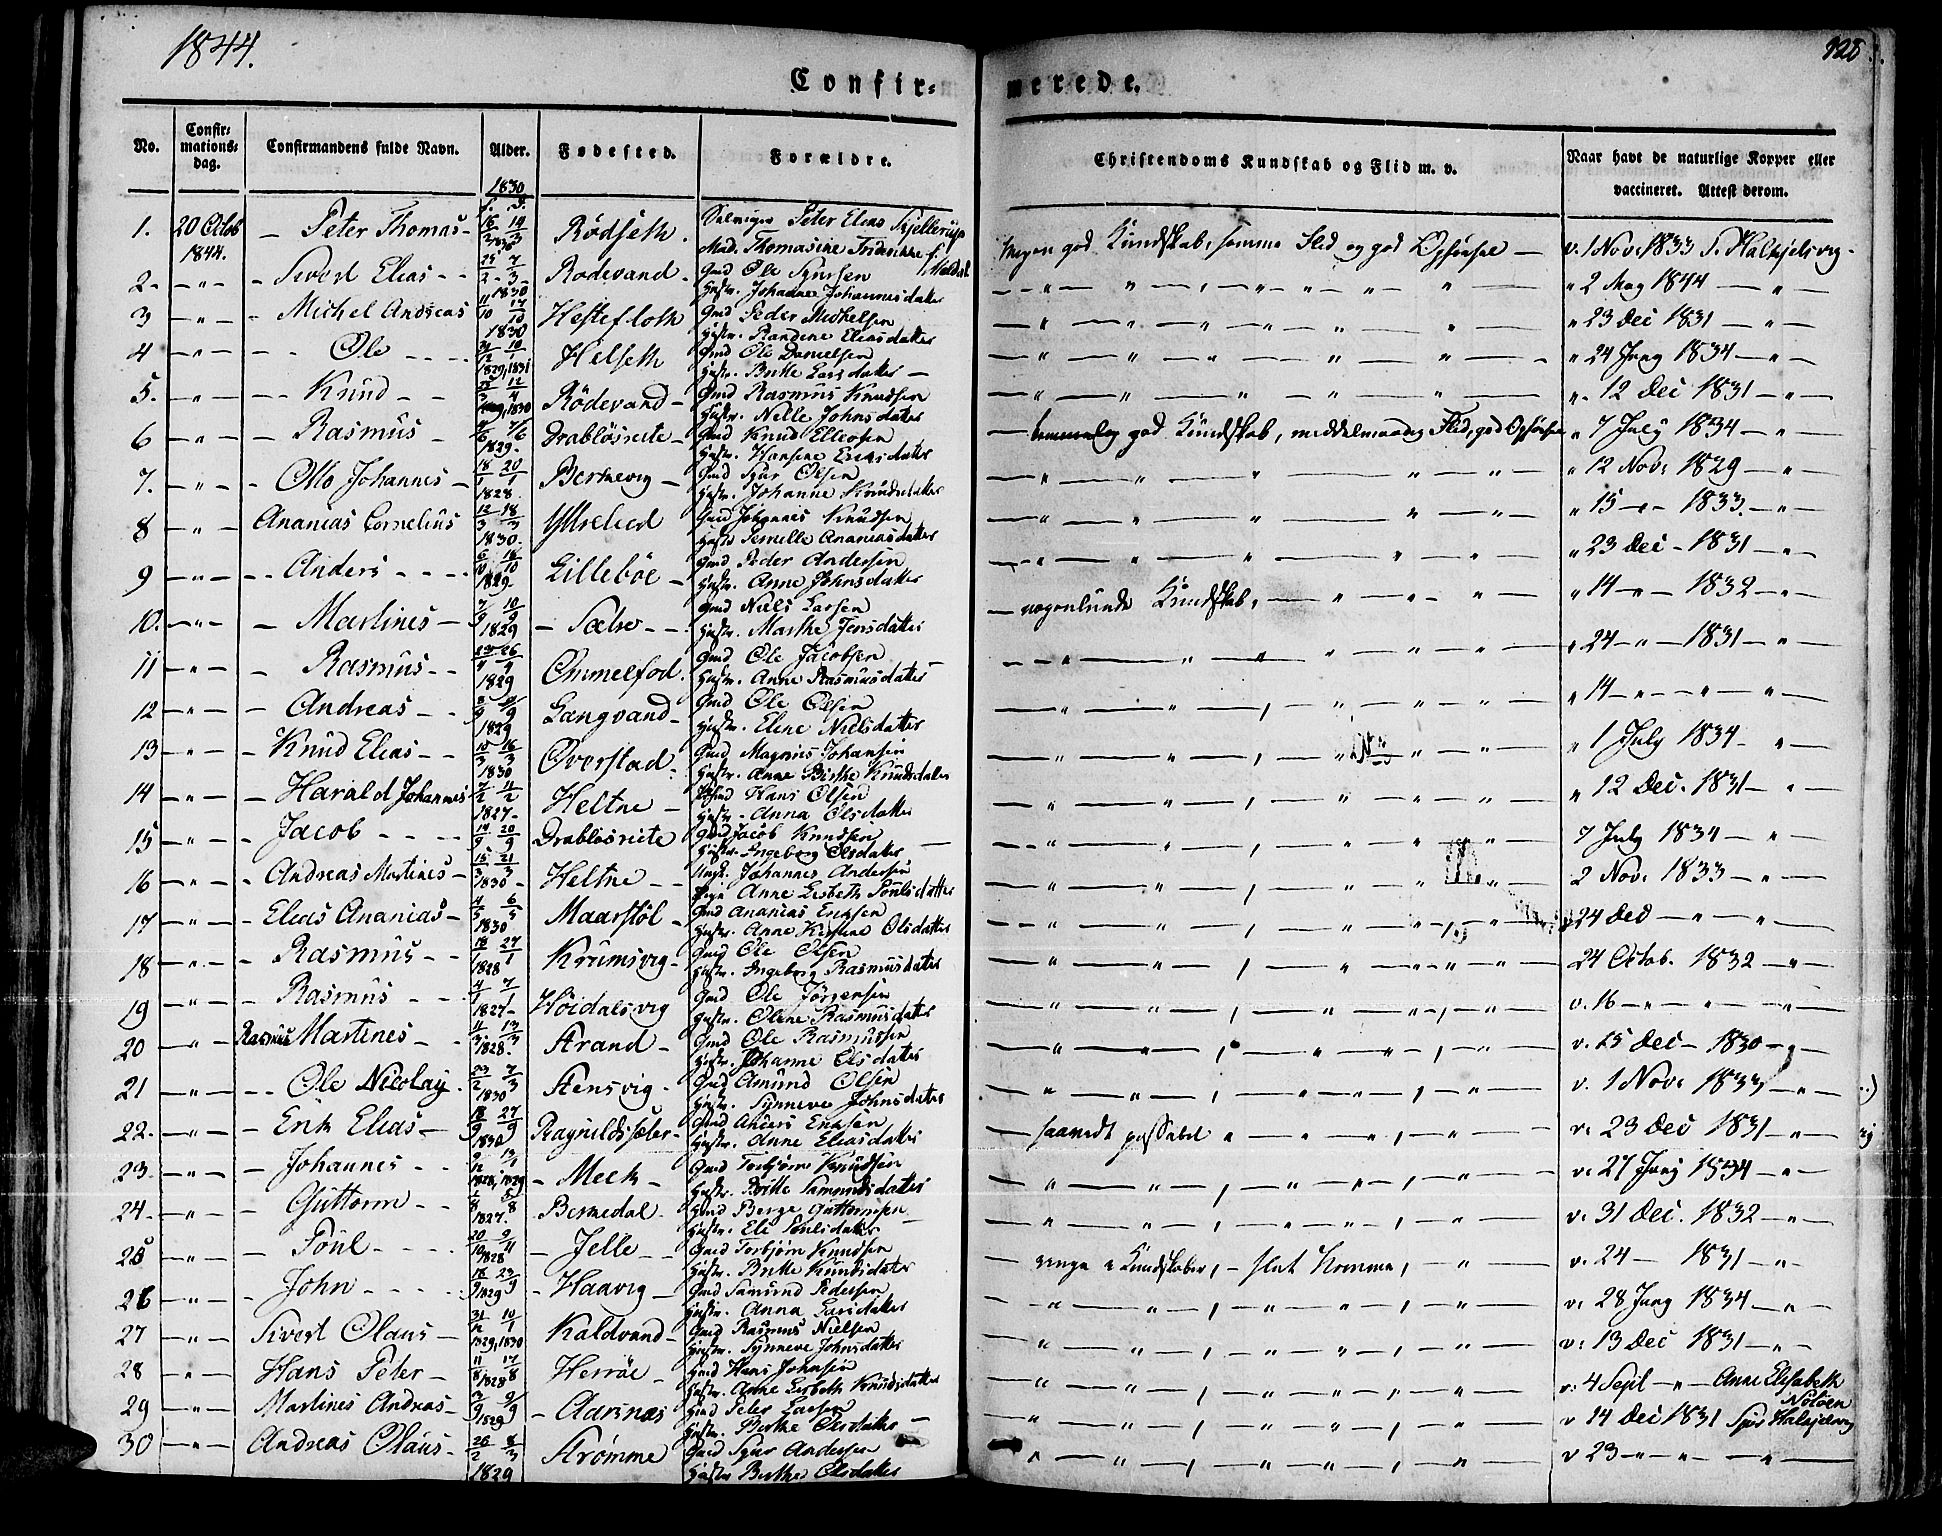 1844.
128
Confir=
merede.
No.
Confir=
mations=
dag.
Confirmandens fulde Navn.
Alder.
Fødested.
Forældre.
Christendoms Kundskab og Flid m. v.
Naar havt de naturlige Kopper eller
vaccineret. Attest derom.
1830
1. 20 Octob 1844. Peter Thomas Rødseth. Peter Elias Kjellerup
Mad. Thomasine Fridrikke f.
Meget god Kundskab, samme Flid og god Opførsel v. 1 Nov. 1833
2 Sivert Elias Rødevand Gmd Ole Syvrsen
Hustr. Johanne Johannesdatter
" 2 May 1844
3 Michel Andreas 1830 Hestefloth Gmd Peder Michelsen
Hustr. Randine Eliasdatter
" 23 Dec 1831
4 Ole 1830 Helseth Gmd Ole Danielsen
Hustr. Britte Larsdatter
" 24 Juny 1834
5. Knud 1829, 1831 Rødevand Gmd Rasmus Knudsen
Hustr. Nelle Johnsdatter
" 12 Dec 1831
6 Rasmus Drabløsreite Gmd Knud Eliasen
Hustr. Hansine Eliasdatter
temmelig god Kundskab, middelmaadig Flid, god Opførsel " 7 July 1834
7. Otto Johannes 1829 Berknevig Gmd Syvr Olsen
Hustr. Johanne Knudsdatter
" 12 Nov. 1829
8 Ananias Cornelius 1828 Ytrelied Gmd Johannes Knudsen
Hustr Pernille Ananiasdatter
" 15 1833
9 Anders 1830 Lillebøe Gmd Peder Andersen
Hustr. Anne Johnsdatter
" 23 Dec 1831
10. Martines 1829 Sætre Gmd Niels Larsen
Hustr. Marthe Jensdatter
nogenlunde Kundskab, " 14 1832
11 Rasmus 1829 Ommelfod. Gmd Ole Jacobsen
Hustr. Anne Rasmusdatter
" 24 1831
12 Andreas 1829 Langvand Gmd Ole Olsen
Hustr. Elene Nielsdatter
" 14
13 Knud Elias 1829 Overstad Gmd Magnus Johansen
Hustr. Anne Birthe Knudsdatter
" 1 July 1834
14 Harald Johannes 1830 Heltne Hans Olsen
Hustr. Anna Olsdatter
" 12 Dec. 1831
15 Jacob 1827 Drabløsreite Gmd Jacob Knudsen
Hustr. Ingeborg Olsdatter
7 July 1834
16 Andreas Martines 1830 Heltne Ungk. Johannes Andersen
Pige Anne Lisbeth Poulsdatter
2 Nov. 1833
17 Elias Ananias Maarstøl Gmd Ananias Ericksen
Hustr. Anne Kirstine Olsdatter
24 Dec
18 Rasmus 1830 Krumsvig Gmd Ole Olsen
Hustr. Ingeborg Rasmusdatter
24 Octob. 1832
19 Rasmus 1828 Høidalsvig Gmd Ole Jørgensen
Hustr. Oline Rasmusdatter
v. 16
20 Rasmus Martines 1827 Strand Gmd Ole Rasmussen
Hustr. Johanne Olsdatter
v. 15 Dec 1830
21 Ole Nicolay 1828 Stensvig Gmd Amund Olsen
Hustr. Synneve Johnsdatter
v. 1 Nov. 1833
22. Erik Elias 1830 Ragnildsæter Gmd Anders Ericksen
Hustr. Anne Eliasdatter
saavidt passabel v. 23 Dec 1831
23. Johannes 1830 Meek Gmd Torbjørn Knudsen
Hustr. Britte Samundsdatter
v. 27 Juny 1834
24. Guttorm 1828, 1829 Berkedal Gmd Berge Guttormsen
Hustr. Eli Poulsdatter
v. 31 Dec. 1832
25 Poul 1827 Jelle Gmd Torbjørn Knudsen
Hustr. Britte Knudsdatter
ringe Kundskaber, slet Nemme, v. 24 1831
26 John 1828 Haavig Gmd Samund Pedersen
Hustr. Anna Larsdatter
v. 28 Juny 1834
27 Sivert Olaus 1829 Kaldvand Gmd Rasmus Nielsen
Hustr. Synneve Johnsdatter
v. 13 Dec 1831
28 Hans Peter 1829, 1830 Herrøe Gmd Hans Johnsen
Hustr. Anne Lisbeth Knudsdatter
v. 4 Sept Anne Elisabeth
Notøen
29 Martines Andreas 1828 Aarsnæs Gmd Peter Larsen
Hustr. Berthe Olsdatter
v 14 Dec 1831
30 Andreas Olaus 1829 Strømme Gmd Syvr Andersen
Hustr Berthe Olsdatter
v 23
1829